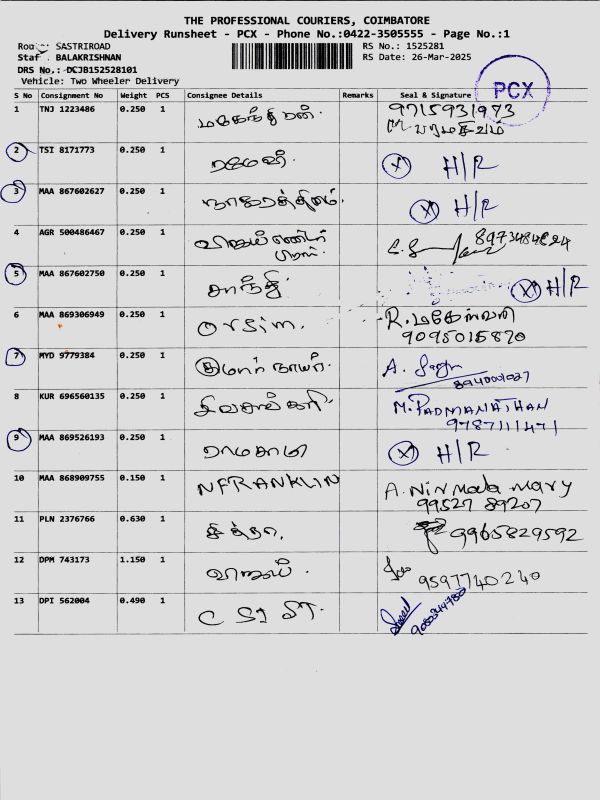 THE PROFESSIONAL COURIERS, COIMBATORE
Delivery Runsheet - PCX - Phone No.:0422-3505555 - Page No.:1
SASTRIROAD RS No.: 1525281
BALAKRISHNAN RS Date: 26-Mar-2025
DRS No.: DCJB152528101
Vehicle: Two Wheeler Delivery
PCX
S No Consignment No Weight PCS Consignee Details Remarks Seal & Signature
1 TNJ 1223486 0.250 1 மகேந்திரன். 9715931973
பரமசிவம்
2 TSI 8171773 0.250 1 ரமேஷ். X H/R
3 MAA 867602627 0.250 1 X H/R
4 AGR 500486467 0.250 1 8973484824
5 MAA 867602750 0.250 1 சாந்தி. X H/R
6 MAA 869306949 0.250 1 R. மகேஸ்வரி
9095015820
7 MYD 9779384 0.250 1 குமார் நாயர். A.
8 KUR 696560135 0.250 1 சிவசங்கரி. M. PADMANATHAN
9787111471
9 MAA 869526193 0.250 1 ராமசாமி X H/R
10 MAA 868909755 0.150 1 N FRANKLIN A. Nirmala mary
99527 89207
11 PLN 2376766 0.630 1 சித்ரா. 9965829592
12 DPM 743173 1.150 1 விஜய். 9597740240
13 DPI 562004 0.490 1 9080344780